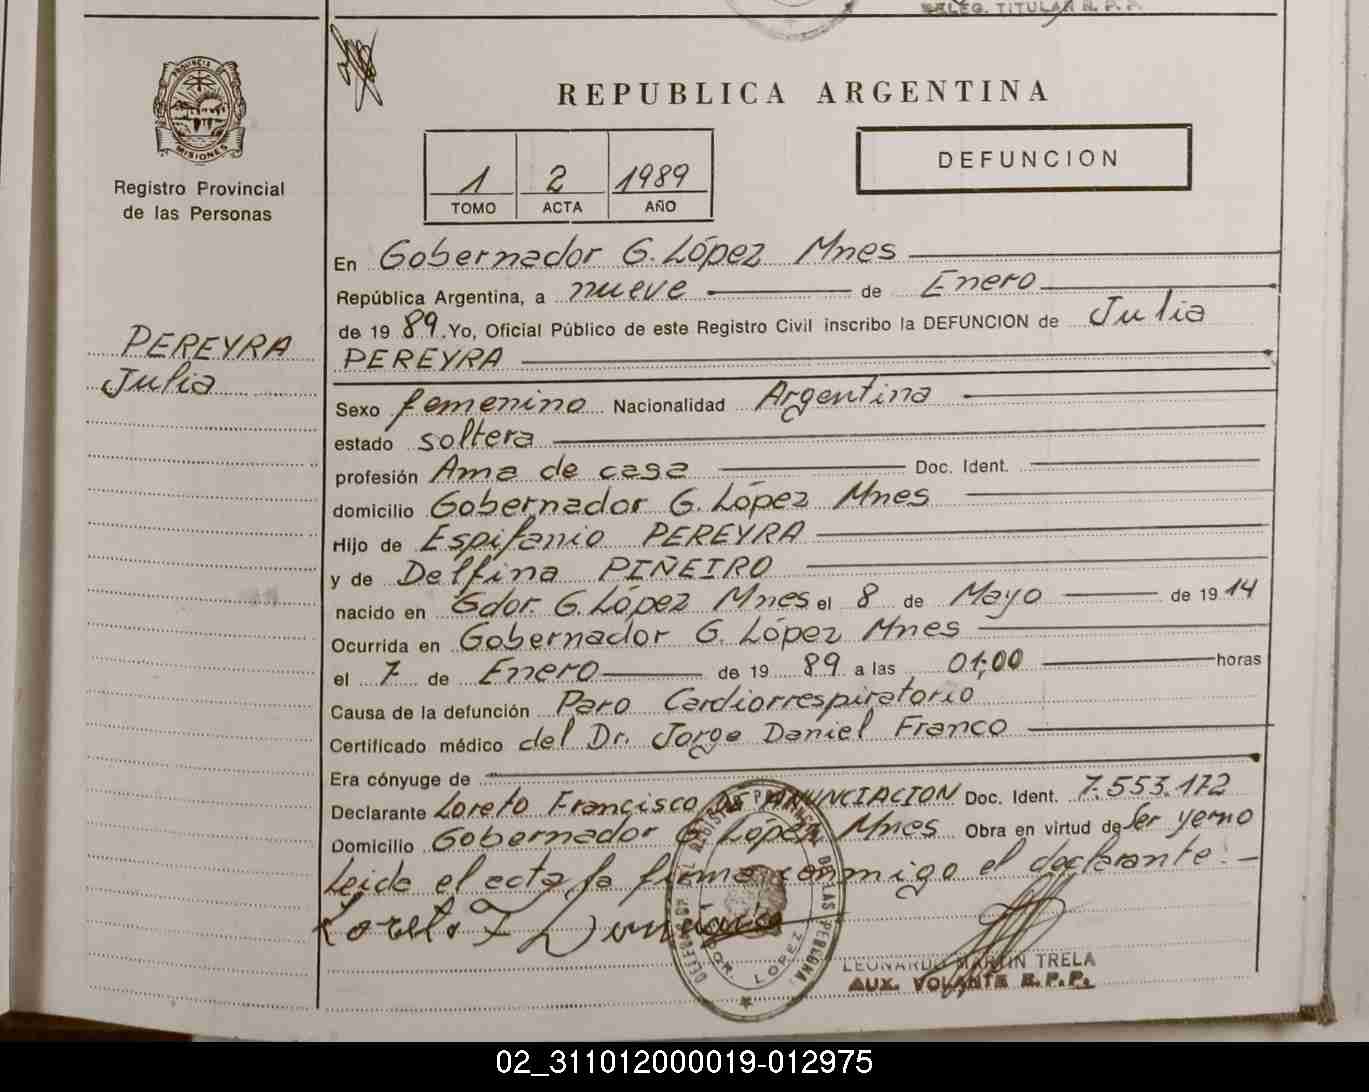 DELEG. TITULAR R.P.P.
PROVINCIA DE
MISIONES
Registro Provincial
de las Personas
REPUBLICA ARGENTINA
1 2 1989
TOMO ACTA AÑO
DEFUNCION
PEREYRA
Julia
En Gobernador G. López Mnes
República Argentina, a nueve de Enero
de 19 89. Yo, Oficial Público de este Registro Civil inscribo la DEFUNCION de Julia
PEREYRA
Sexo femenino Nacionalidad Argentina
estado soltera
profesión Ama de casa Doc. Ident.
domicilio Gobernador G. López Mnes
Hijo de Espifanio PEREYRA
y de Delfina PIÑEIRO
nacido en Gdor. G. López Mnes el 8 de Mayo de 19 14
Ocurrida en Gobernador G. López Mnes
el 7 de Enero de 19 89 a las 01,00 horas
Causa de la defunción Paro Cardiorrespiratorio
Certificado médico del Dr. Jorge Daniel Franco
Era cónyuge de
Declarante Loreto Francisco ANUNCIACION Doc. Ident. 7.553.172
Domicilio Gobernador G. López Mnes Obra en virtud de Ser yerno
Leida el acta, la firma conmigo el declarante.-
Loreto F
LEONARDO MARTIN TRELA
AUX. VOLANTE R.P.P.
02_311012000019-012975